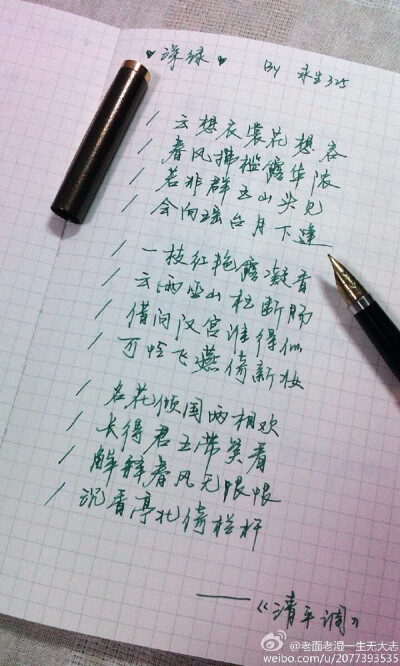 ♥ 深绿 ♥ By 永生325
/ 云想衣裳花想容
/ 春风拂槛露华浓
/ 若非群玉山头见
/ 会向瑶台月下逢
/ 一枝红艳露凝香
/ 云雨巫山枉断肠
/ 借问汉宫谁得似
/ 可怜飞燕倚新妆
/ 名花倾国两相欢
/ 长得君王带笑看
/ 解释春风无限恨
/ 沉香亭北倚栏杆
——《清平调》
@老面老湿一生无大志
weibo.com/u/2077393535